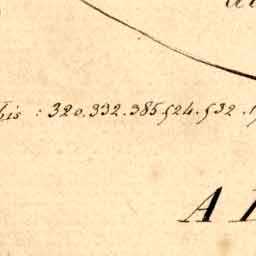 his : 320.332.385.524.532.
A